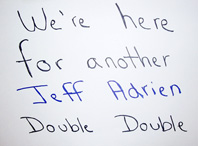 We're here
for another
Jeff Adrien
Double Double